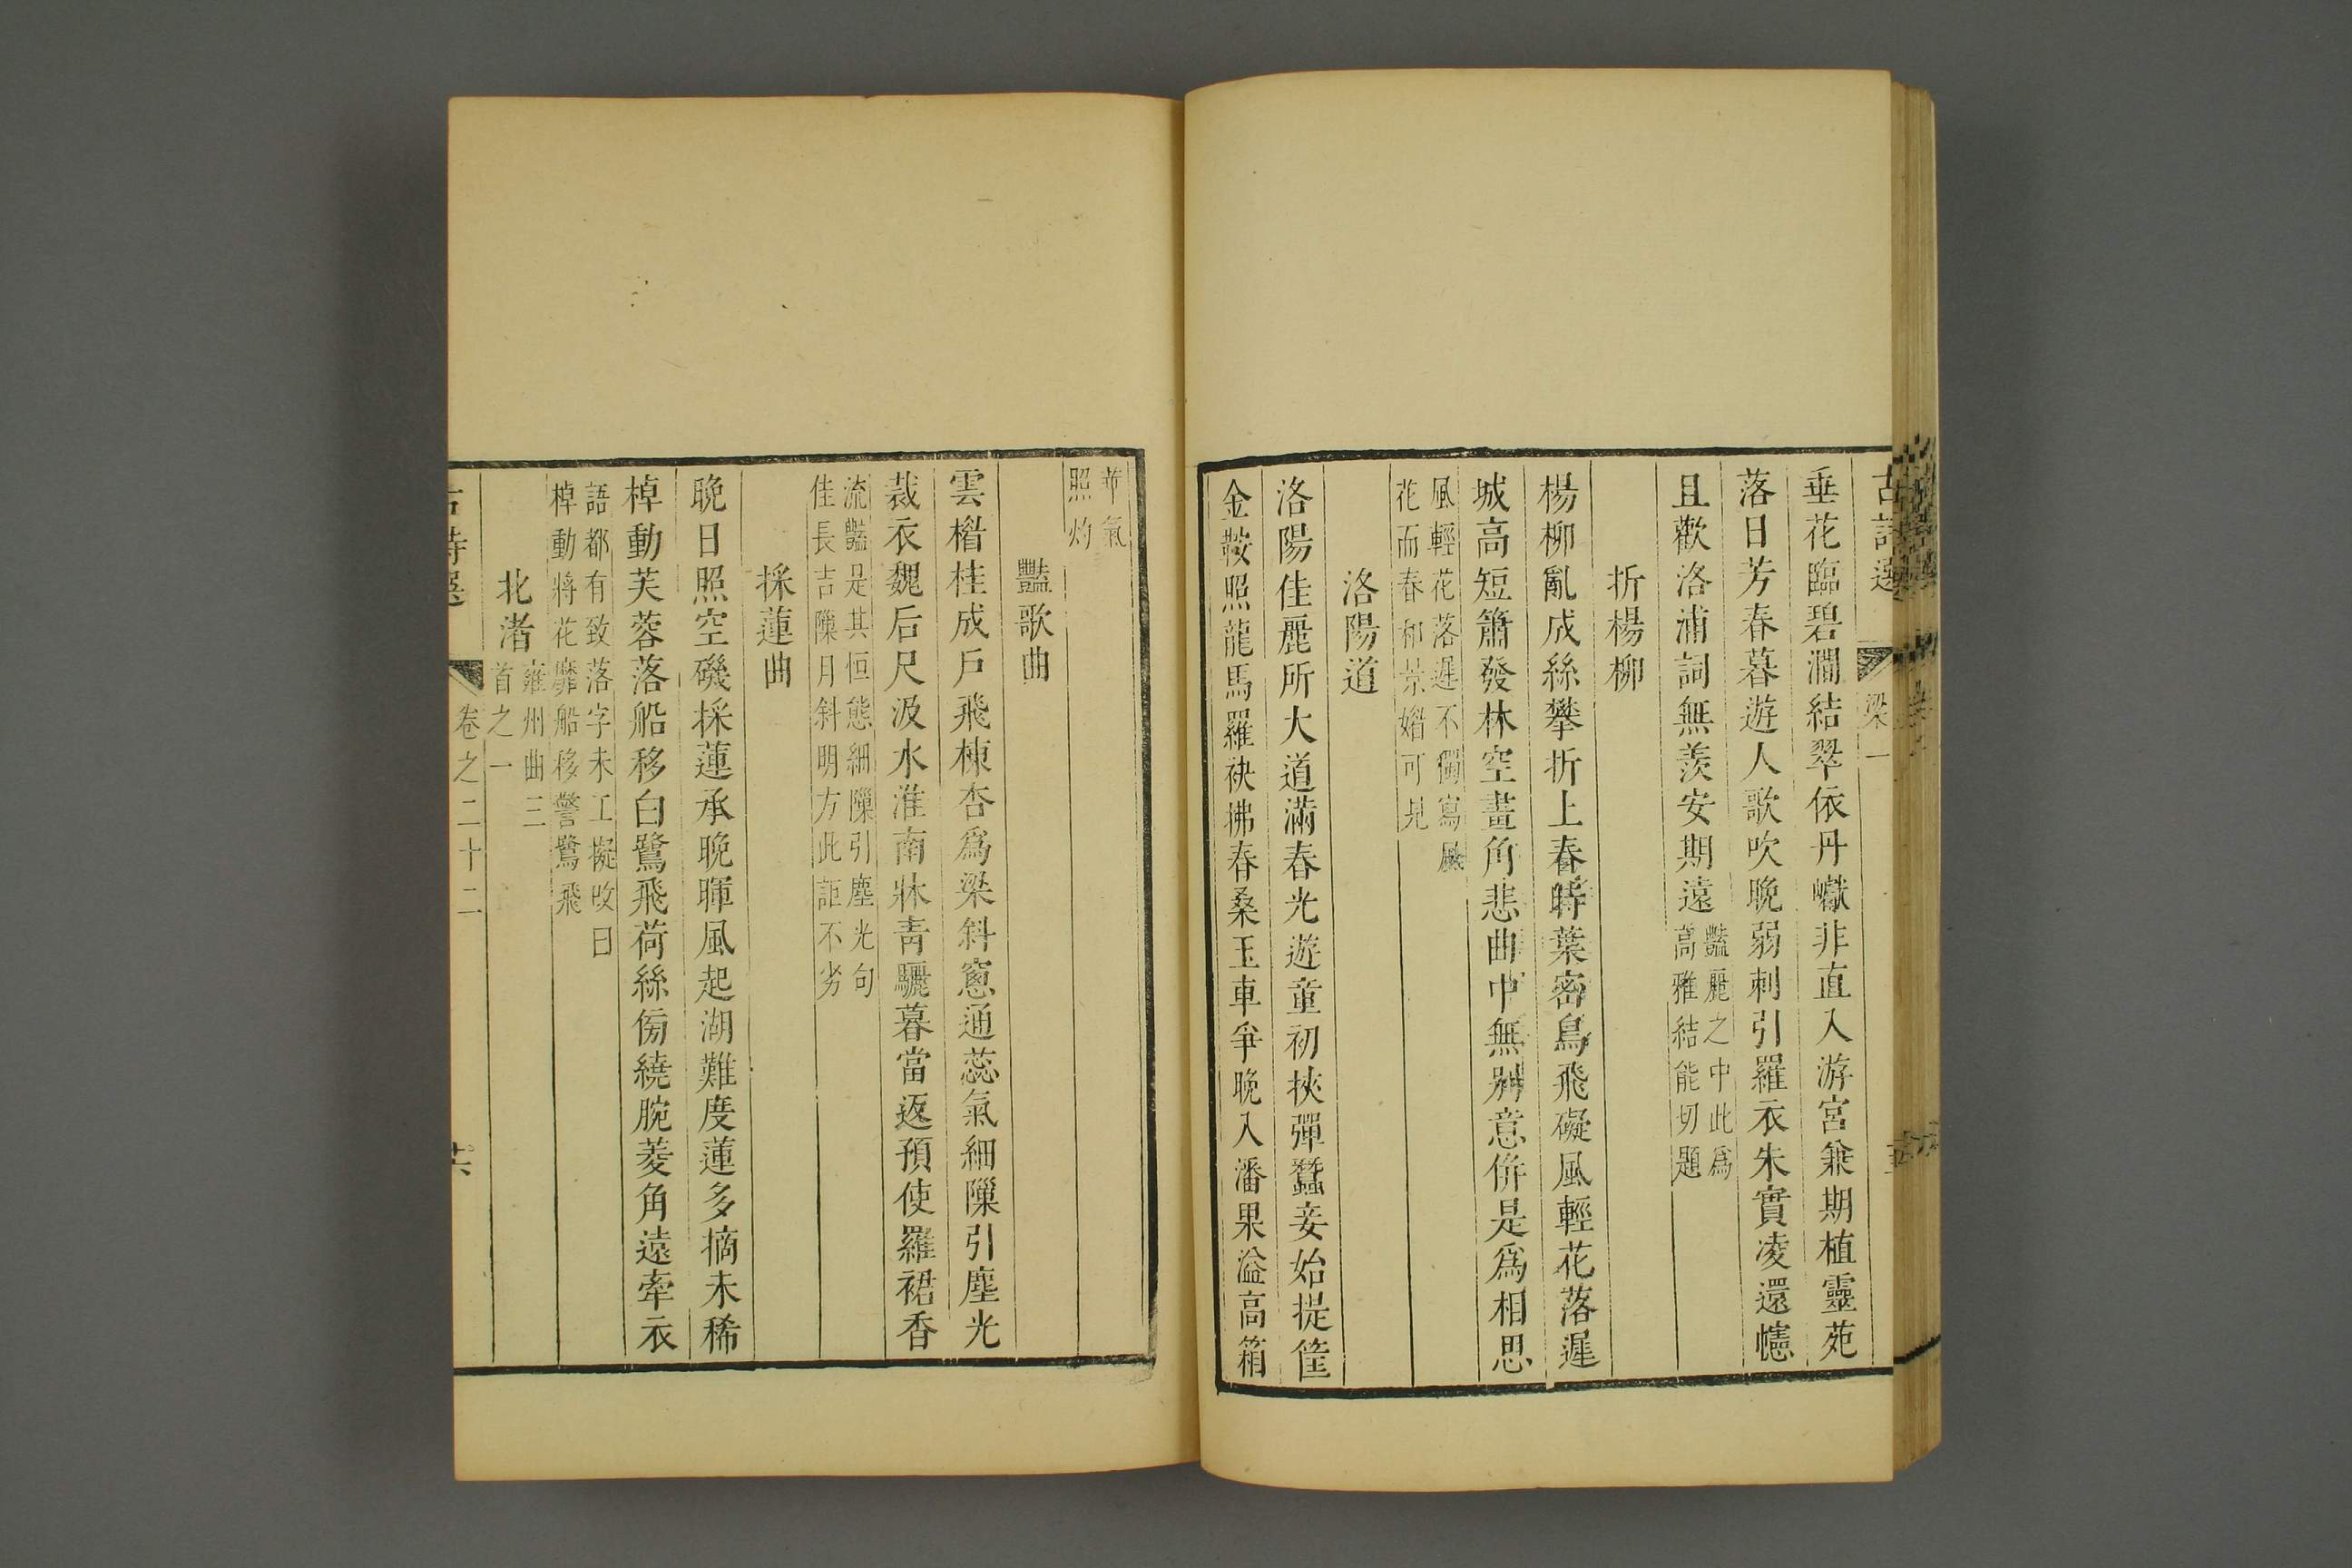 古詩選
梁一
垂花臨碧澗結翠依丹巘非直入游宮兼期植靈苑
落日芳春暮遊人歌吹晚弱刺引羅衣朱實凌還幰
且歡洛浦詞無羨安期遠
豔麗之中此爲
高雅結能切題
折楊柳
楊柳亂成絲攀折上春時葉密鳥飛礙風輕花落遲
城高短簫發林空畫角悲曲中無別意併是爲相思
風輕花落遲不獨寫風
花而春和景媚可見
洛陽道
洛陽佳麗所大道滿春光遊童初挾彈蠶妾始提筐
金鞍照龍馬羅袂拂春桑玉車爭晚入潘果溢高箱
華氣
照灼
豔歌曲
雲楣桂成戶飛棟杏爲梁斜窻通蕊氣細隟引塵光
裁衣魏后尺汲水淮南牀青驪暮當返預使羅裙香
流豔是其恒態細隟引塵光句
佳長吉隟月斜明方此詎不劣
採蓮曲
晚日照空磯採蓮承晚暉風起湖難度蓮多摘未稀
棹動芙蓉落船移白鷺飛荷絲傍繞腕菱角遠牽衣
語都有致落字未工擬改曰
棹動將花靡船移警鷺飛
北渚
雍州曲三
首之一
古詩選
卷之二十二